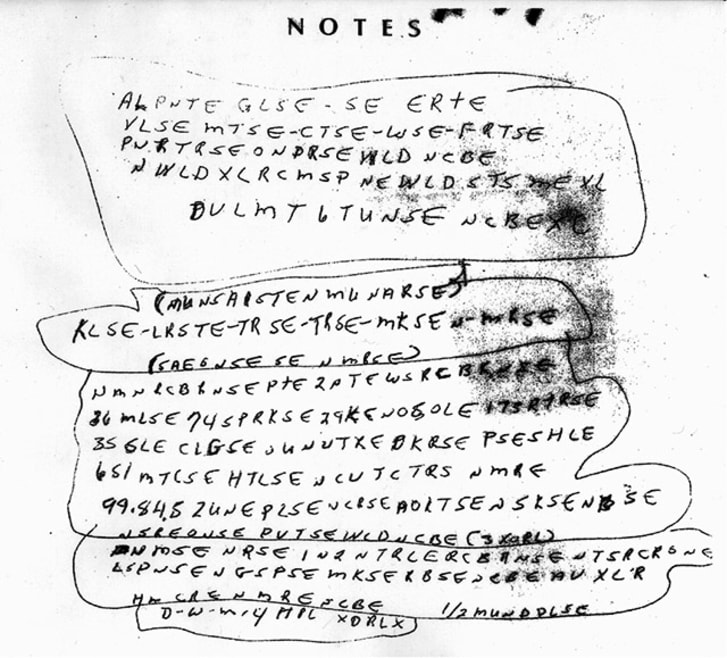 NOTES
ALPNTE GLSE-SE ERTE
VLSE MTSE-CTSE-WSE-FRTSE
PNRTRSEONDRSEWLD NCBE
NWLDXLRCMSP NEWLDSTS MEXL
DULMT6TUNSE NCBEXC
(MUNSARSTENMUNARSE)
KLSE-LRSTE-TRSE-TRSE-MKSEN-MRSE
(SAEGNSESE NMRSE)
NMNRCBRNSEPTE2PTEWSRCBRNSE
36MLSE74SPRKSE29KENOSOLE173RTRSE
35GLE CLGSE OUNUTXE DKRSE PSESHLE
651MTCSE HTLSE NCUTCTRS NMRE
99.84.52UNEPLSENCRSEAOLTSENSKSENBSE
NSREONSE PVTSEWLDNCBE (3XORL)
NMSE NRSE IN2NTRLERCBRNSE NTSRCRONE
LSPNSENGSPSE MKSERBSENCBEAUXLR
HMCRENMRENCBE 1/2MUNDDLSE
D-W-M-4 MPL XDRLX